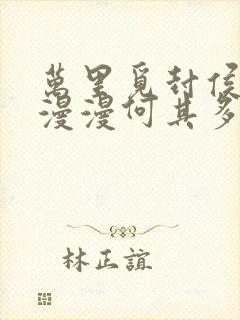 萬里覓封侯
漫漫何其多
林正誼